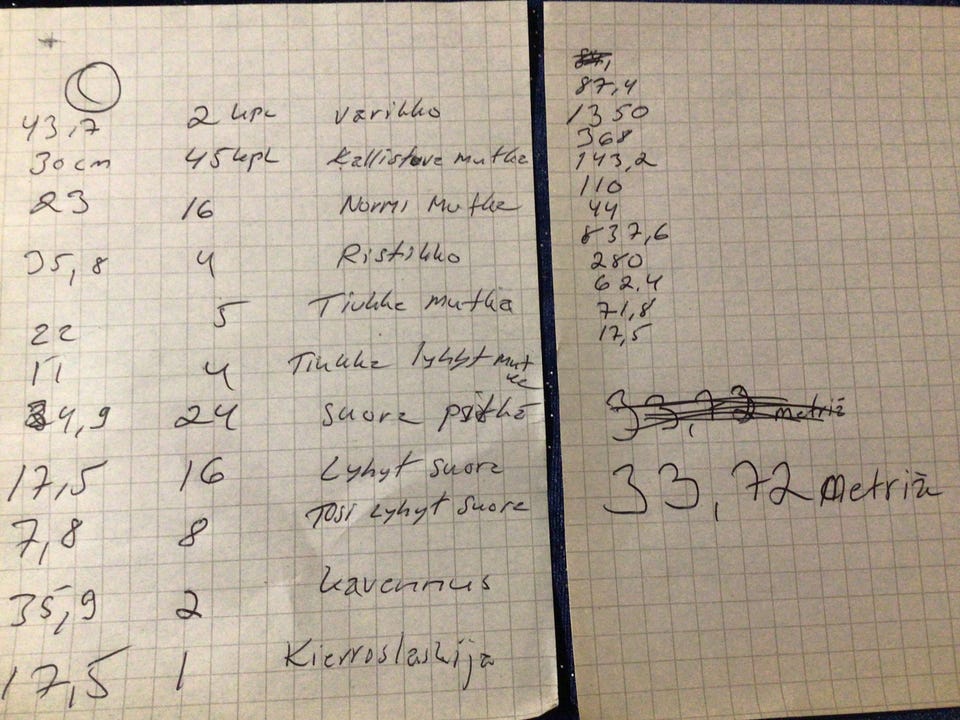 43,7 2 kpl varikko
30 cm 45 kpl Kallistava mutka
23 16 Normi mutka
35,8 4 Ristikko
22 5 Tiukka mutka
11 4 Tiukka lyhyt mutka
34,9 24 suora pitkä
17,5 16 Lyhyt suora
7,8 8 Tosi Lyhyt suora
35,9 2 kavennus
17,5 1 Kierroslaskija
87,4
1350
368
143,2
110
44
837,6
280
62,4
71,8
17,5
33,72 metriä
33,72 metriä